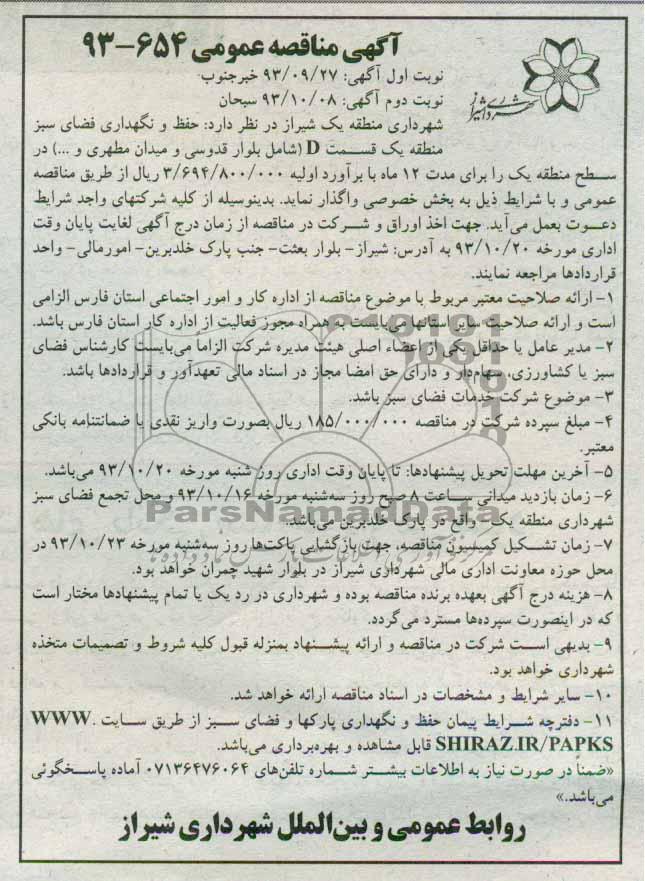 آگهی مناقصه عمومی ۶۵۴-۹۳
نوبت اول آگهی: ۹۳/۰۹/۲۷ خبرجنوب
نوبت دوم آگهی: ۹۳/۱۰/۰۸ سبحان
شهرداری شیراز
شهرداری منطقه یک شیراز در نظر دارد: حفظ و نگهداری فضای سبز
منطقه یک قسمت D (شامل بلوار قدوسی و میدان مطهری و ...) در
سطح منطقه یک را برای مدت ۱۲ ماه با برآورد اولیه ۳/۶۹۴/۸۰۰/۰۰۰ ریال از طریق مناقصه
عمومی و با شرایط ذیل به بخش خصوصی واگذار نماید. بدینوسیله از کلیه شرکتهای واجد شرایط
دعوت بعمل می‌آید. جهت اخذ اوراق و شرکت در مناقصه از زمان درج آگهی لغایت پایان وقت
اداری مورخه ۹۳/۱۰/۲۰ به آدرس: شیراز- بلوار بعثت- جنب پارک خلدبرین- امورمالی- واحد
قراردادها مراجعه نمایند.
۱- ارائه صلاحیت معتبر مربوط با موضوع مناقصه از اداره کار و امور اجتماعی استان فارس الزامی
است و ارائه صلاحیت سایر استانها می‌بایست به همراه مجوز فعالیت از اداره کار استان فارس باشد.
۲- مدیر عامل یا حداقل یکی از اعضاء اصلی هیئت مدیره شرکت الزاماً می‌بایست کارشناس فضای
سبز یا کشاورزی، سهام‌دار و دارای حق امضا مجاز در اسناد مالی تعهدآور و قراردادها باشد.
۳- موضوع شرکت خدمات فضای سبز باشد.
۴- مبلغ سپرده شرکت در مناقصه ۱۸۵/۰۰۰/۰۰۰ ریال بصورت واریز نقدی یا ضمانتنامه بانکی
معتبر.
۵- آخرین مهلت تحویل پیشنهادها: تا پایان وقت اداری روز شنبه مورخه ۹۳/۱۰/۲۰ می‌باشد.
۶- زمان بازدید میدانی ساعت ۸ صبح روز سه‌شنبه مورخه ۹۳/۱۰/۱۶ و محل تجمع فضای سبز
شهرداری منطقه یک - واقع در پارک خلدبرین می‌باشد.
ParsNamadData
۷- زمان تشکیل کمیسیون مناقصه، جهت بازگشایی پاکت‌ها روز سه‌شنبه مورخه ۹۳/۱۰/۲۳ در
محل حوزه معاونت اداری مالی شهرداری شیراز در بلوار شهید چمران خواهد بود.
۸- هزینه درج آگهی بعهده برنده مناقصه بوده و شهرداری در رد یک یا تمام پیشنهادها مختار است
که در اینصورت سپرده‌ها مسترد می‌گردد.
۹- بدیهی است شرکت در مناقصه و ارائه پیشنهاد بمنزله قبول کلیه شروط و تصمیمات متخذه
شهرداری خواهد بود.
۱۰- سایر شرایط و مشخصات در اسناد مناقصه ارائه خواهد شد.
۱۱- دفترچه شرایط پیمان حفظ و نگهداری پارکها و فضای سبز از طریق سایت WWW.
SHIRAZ.IR/PAPKS قابل مشاهده و بهره‌برداری می‌باشد.
«ضمناً در صورت نیاز به اطلاعات بیشتر شماره تلفن‌های ۰۷۱۳۶۴۷۶۰۶۴ آماده پاسخگوئی
می‌باشد.»
روابط عمومی و بین‌الملل شهرداری شیراز